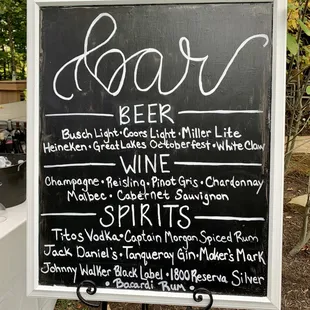 bar
BEER
Busch Light • Coors Light • Miller Lite
Heineken • Great Lakes Octoberfest • White Claw
WINE
Champagne • Reisling • Pinot Gris • Chardonnay
Malbec • Cabernet Sauvignon
SPIRITS
Titos Vodka • Captain Morgan Spiced Rum
Jack Daniel's • Tanqueray Gin • Maker's Mark
Johnny Walker Black Label • 1800 Reserva Silver
• Bacardi Rum •